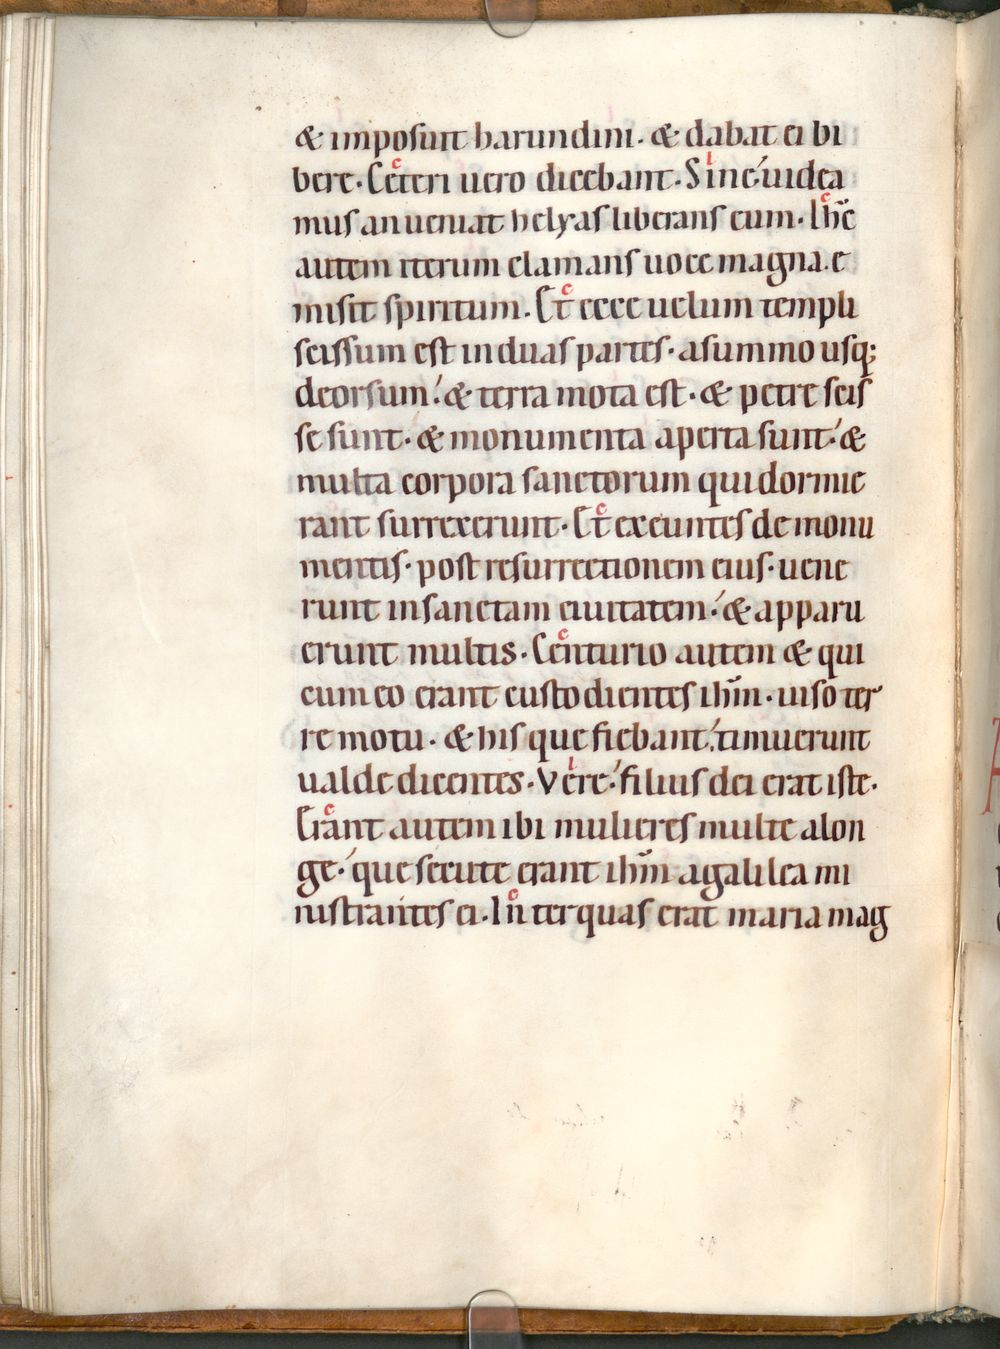 & imposuit harundini· & dabat ei bi
bere· Ceteri uero dicebant· Sine uidea
mus an ueniat helyas liberans eum· Ihc̄
autem iterum clamans uoce magna· e
misit spiritum· Et ecce uelum templi
scissum est in duas partes· a summo usq;
deorsum· & terra mota est· & petre scis
se sunt· & monumenta aperta sunt· &
multa corpora sanctorum qui dormie
rant surrexerunt· Et exeuntes de monu
mentis· post resurrectionem eius· uene
runt in sanctam ciuitatem· & apparu
erunt multis· Centurio autem & qui
cum eo erant custodientes ihm̄· uiso ter
re motu· & his que fiebant· timuerunt
ualde dicentes· Vere· filius dei erat iste·
Erant autem ibi mulieres multe a lon
ge· que secute erant ihm̄ a galilea mi
nistrantes ei· Inter quas erat maria mag